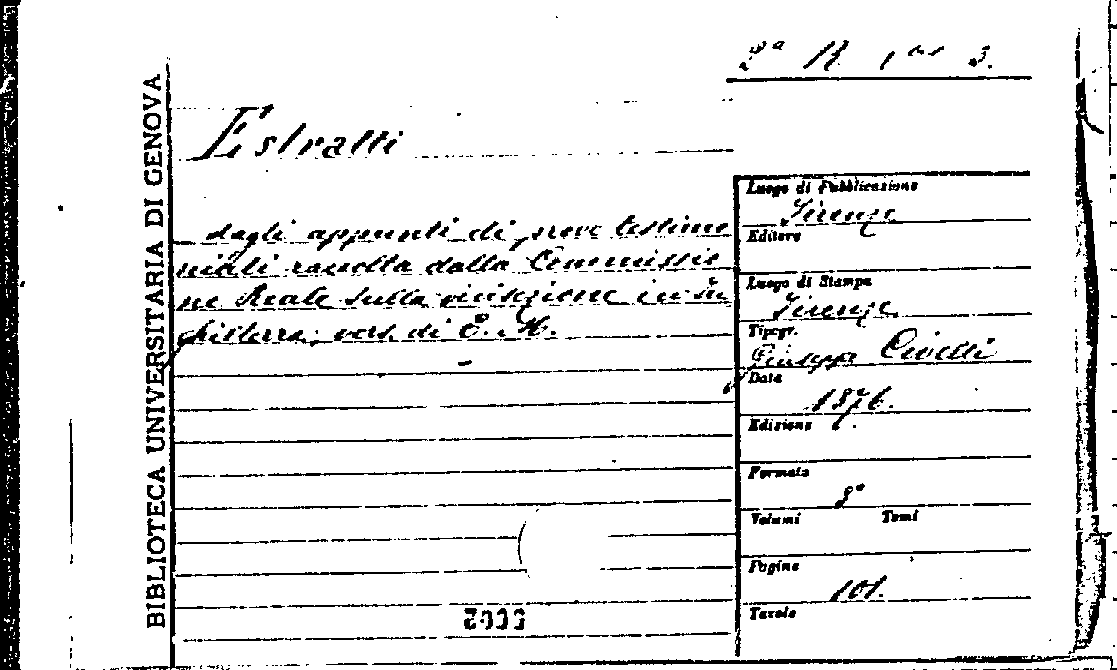 2ª R 1 bis 3.
BIBLIOTECA UNIVERSITARIA DI GENOVA
Estratti
dagli appunti di prove testimo
niali raccolta dalla Commissio
ne Reale sulla vivisezione in In
ghilterra; vers. di E. H.
Luogo di Pubblicazione
Firenze
Editore
Luogo di Stampa
Firenze
Tipogr.
Giuseppe Civelli
Data
1876.
Edizione
Formato
8°
Volumi Tomi
Pagine
101.
Tavole